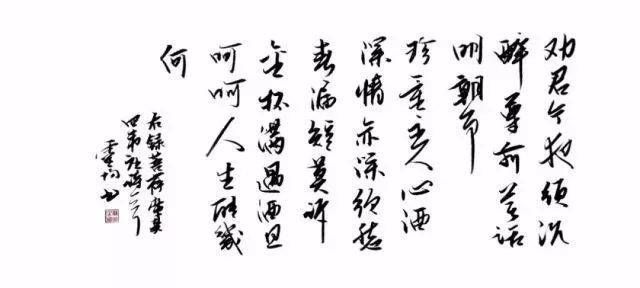 劝君今夜须沉
醉尊前莫话
明朝事
珍重主人心酒
深情亦深须愁
春漏短莫诉
金杯满遇酒且
呵呵人生能几
何
右録菩萨蛮其
四韦庄
书